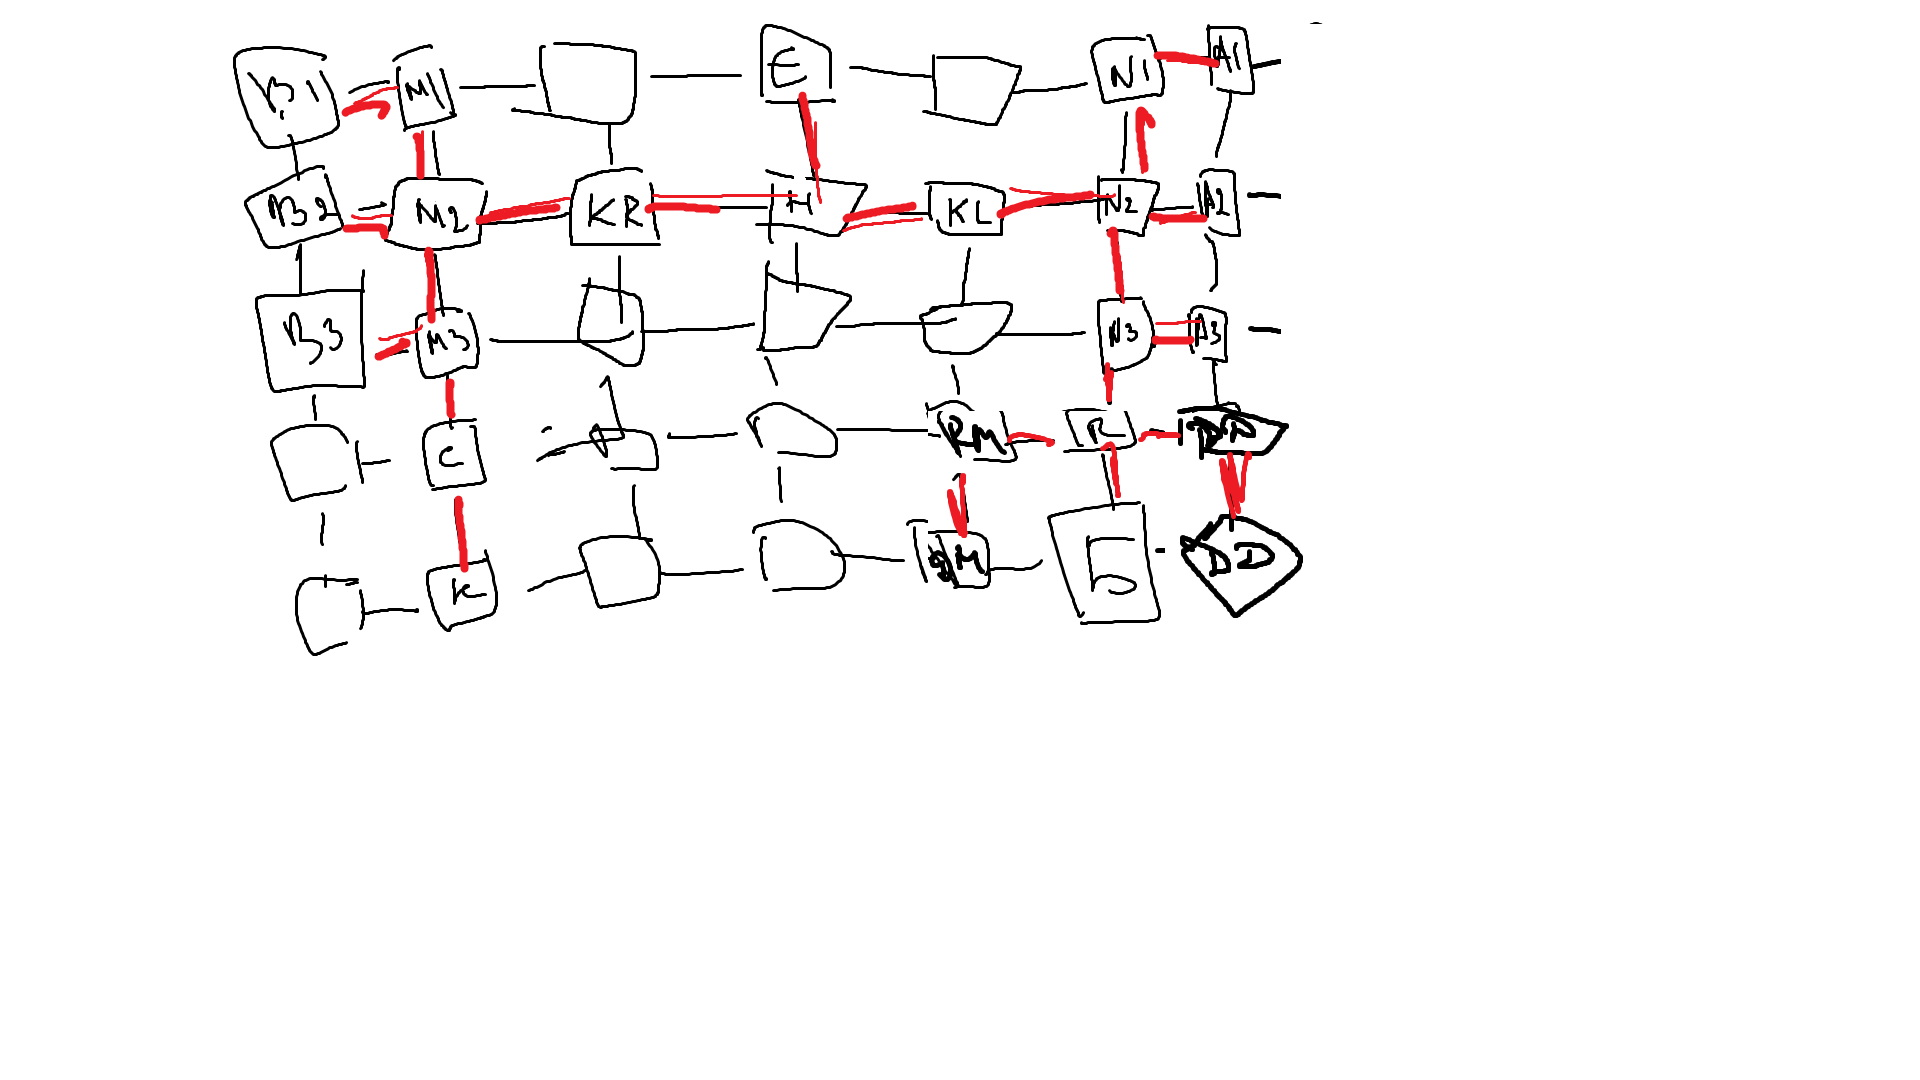 B1 M1 E N1 A1
B2 M2 KR H KL N2 A2
B3 M3 N3 A3
C RM R
K M DD